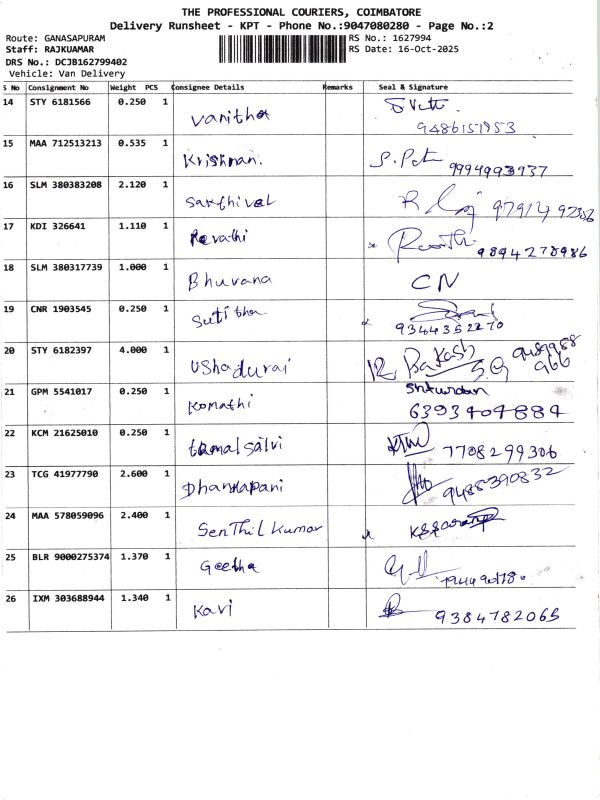 THE PROFESSIONAL COURIERS, COIMBATORE
Delivery Runsheet - KPT - Phone No.:9047080280 - Page No.:2
Route: GANASAPURAM RS No.: 1627994
Staff: RAJKUAMAR RS Date: 16-Oct-2025
DRS No.: DCJB162799402
Vehicle: Van Delivery
S No Consignment No Weight PCS Consignee Details Remarks Seal & Signature
14 STY 6181566 0.250 1 Vanitha
15 MAA 712513213 0.535 1 Krishnan. 9994993937
16 SLM 380383208 2.120 1 Sakthivel
17 KDI 326641 1.110 1 Revathi 9894278986
18 SLM 380317739 1.000 1 Bhuvana CN
19 CNR 1903545 0.250 1 9344352270
20 STY 6182397 4.000 1 Ushadurai
21 GPM 5541017 0.250 1 Komathi
6393404884
22 KCM 21625010 0.250 1 tamalsalvi 7708299306
23 TCG 41977790 2.600 1 Dhandapani 9488390832
24 MAA 578059096 2.400 1 Senthil kumar
25 BLR 9000275374 1.370 1 Geetha
26 IXM 303688944 1.340 1 Kavi 9384782065